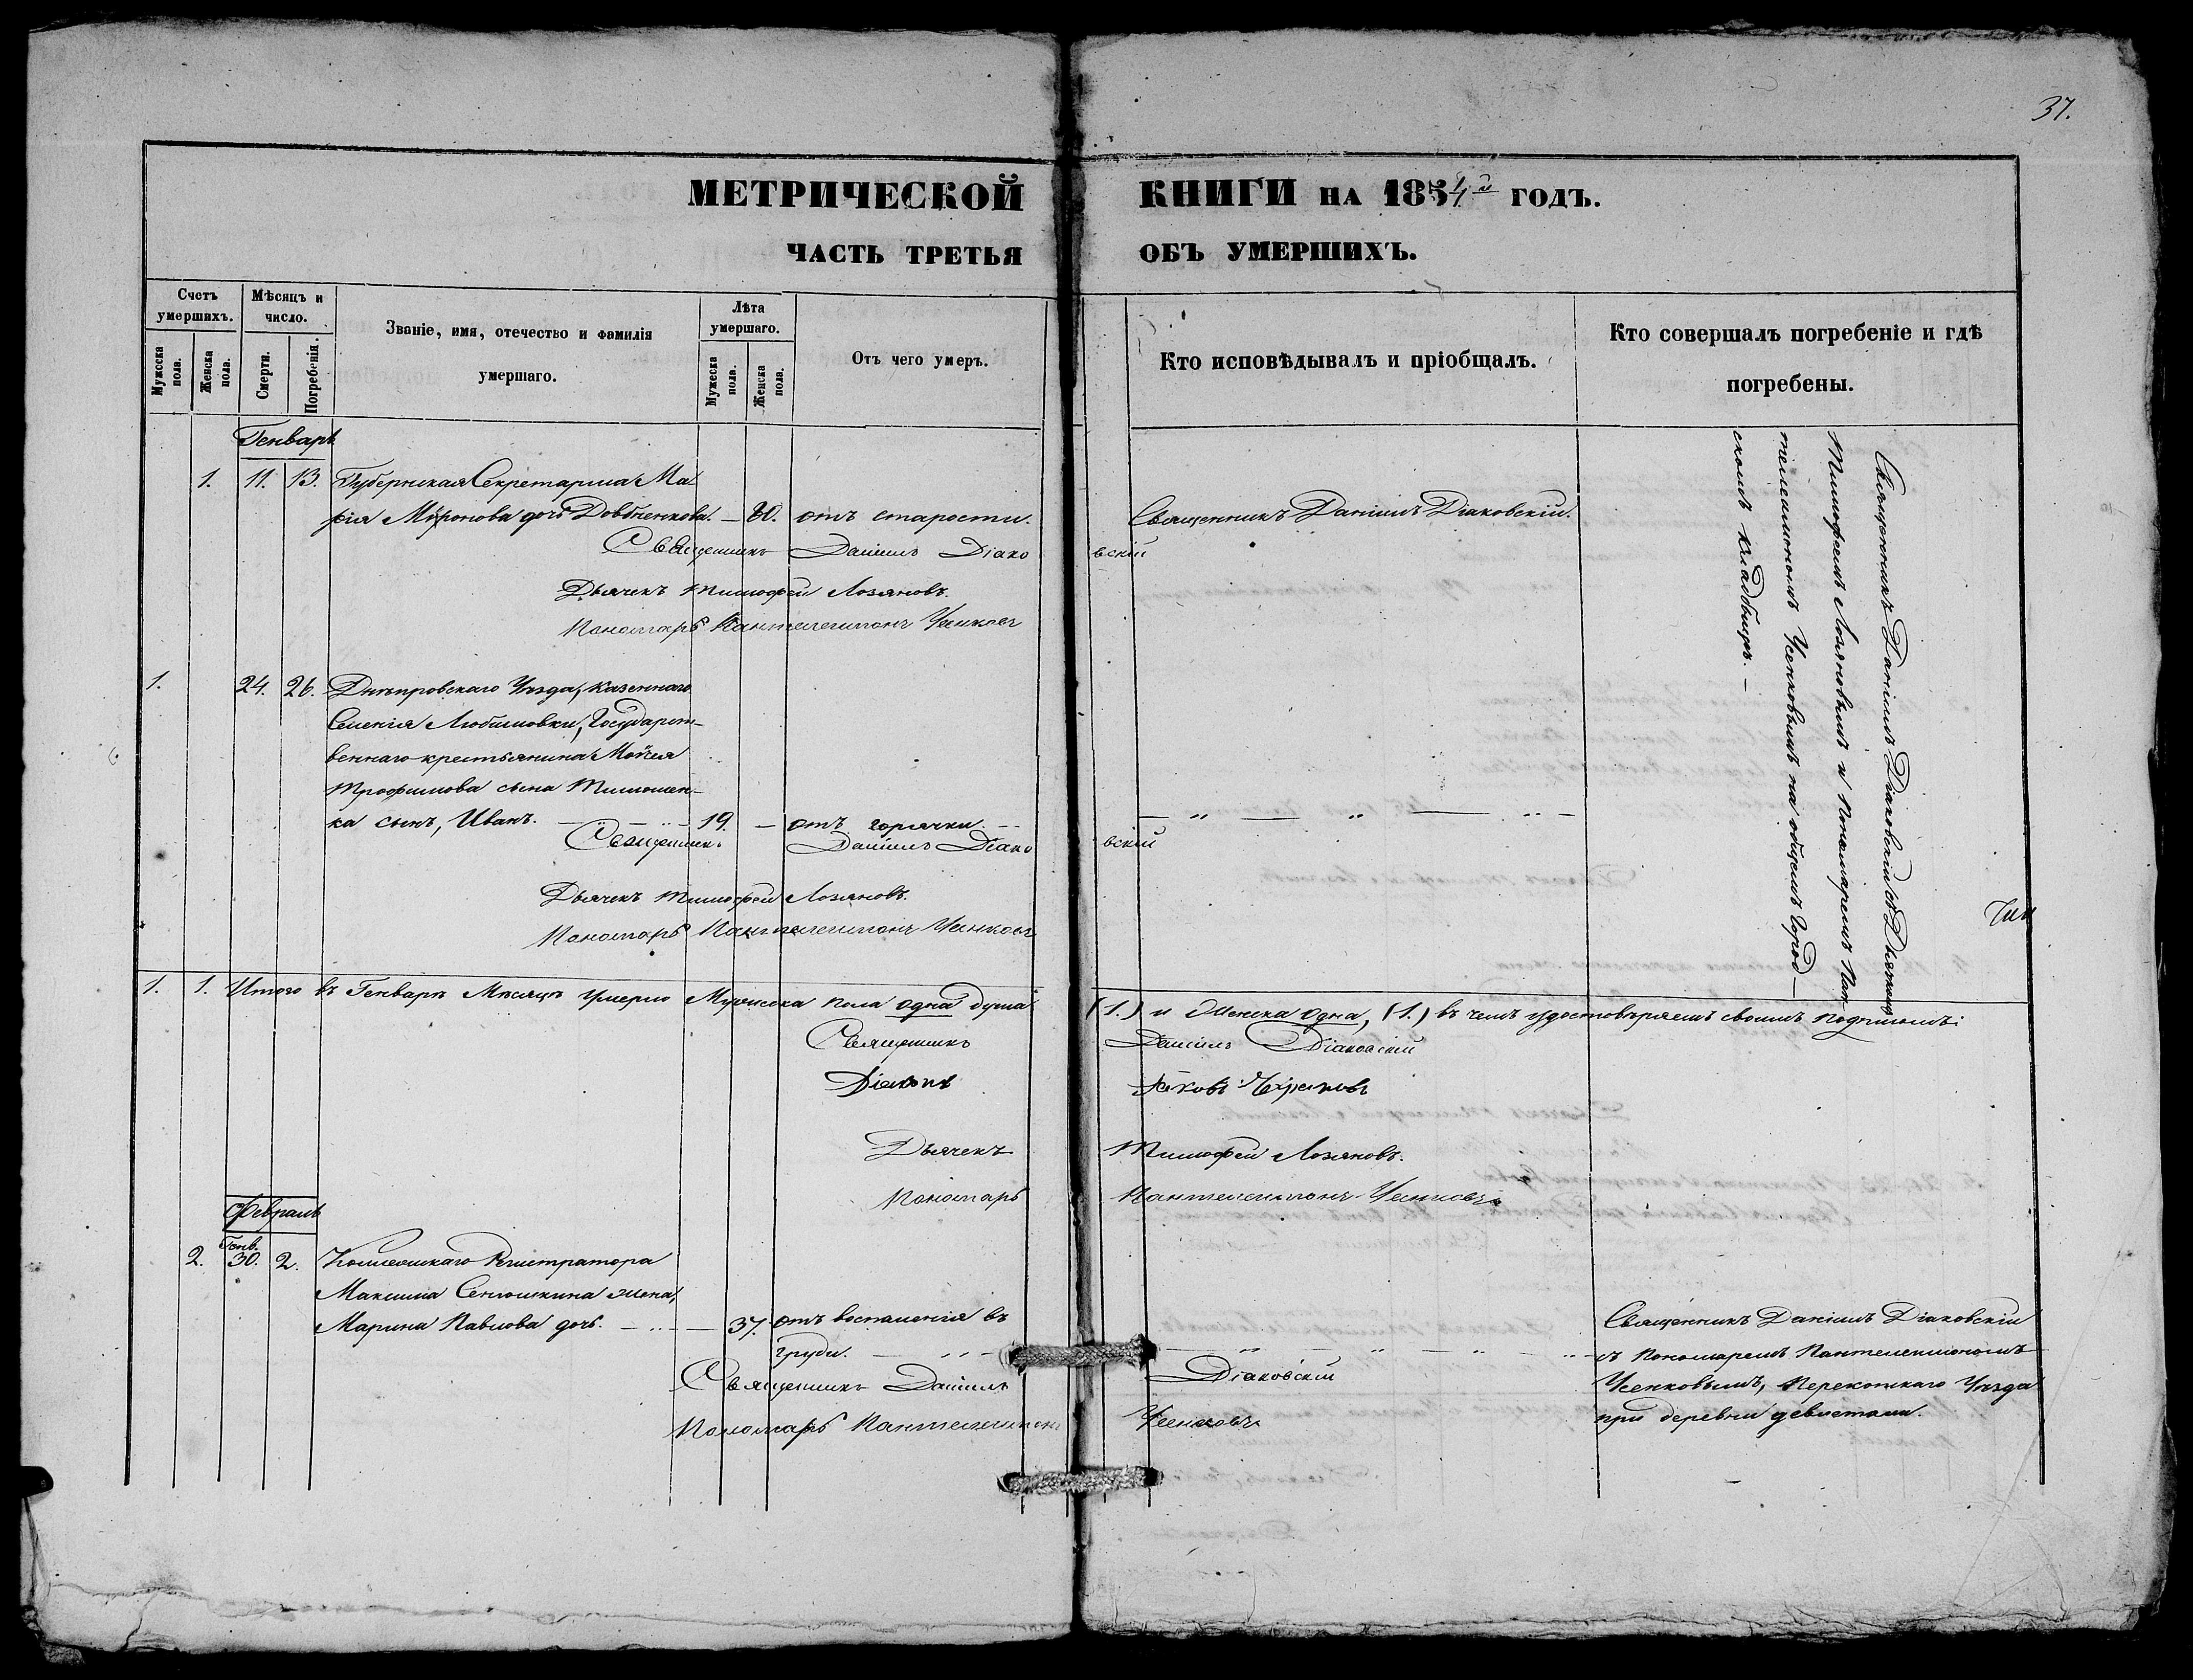 37.
МЕТРИЧЕСКОЙ КНИГИ НА 1854й ГОДЪ.
ЧАСТЬ ТРЕТЬЯ ОБЪ УМЕРШИХЪ.
Счетъ умершихъ.
Мужеска пола.
Женска пола.
Мѣсяцъ и число.
Смерти.
Погребенія.
Званіе, имя, отечество и фамилія умершаго.
Лѣта умершаго.
Мужеска пола.
Женска пола.
Отъ чего умеръ.
Кто исповѣдывалъ и пріобщалъ.
Кто совершалъ погребеніе и гдѣ погребены.
Генварь
1. 11. 13. Губернская Секретарша Ма-
рія Миронова дочь — 80. отъ старости. Священникъ Даніилъ Діаковскій.
Священникъ Даніилъ Діаковскій
Дьячекъ Тимофей Лозяновъ.
Пономарь Пантелеимонъ Усенковъ
Священникъ Даніилъ Діаковскій съ Дьячкомъ
Тимофеемъ Лозяновымъ и Пономаремъ Пан-
телеимономъ Усенковымъ на общемъ Город-
скомъ кладбищѣ. —
1. 24. 26. Днѣпровскаго Уѣзда, казеннаго
Селенія Любимовки, Государст-
веннаго крестьянина Мойсея
Трофимова сына Тимошен-
ка сынъ, Иванъ. — 19. — отъ горячки. — „ — „ — „ —
Священникъ Даніилъ Діаковскій
Дьячекъ Тимофей Лозяновъ.
Пономарь Пантелеимонъ Усенковъ
1. 1. Итого въ Генварѣ Мѣсяцѣ умерло Мужеска пола одна душа (1.) и Женска одна, (1.) въ чемъ удостовѣряемъ своимъ подписомъ:
Священникъ Даніилъ Діаковскій
Діаконъ Іаковъ
Дьячекъ Тимофей Лозяновъ.
Пономарь Пантелеимонъ Усенковъ
Февраль
2. Генв. 30. 2. Коллежскаго Регистратора
Максима Сенюшкина жена,
Марина Павлова дочь. — „ — 37. отъ воспаленія въ
груди. — „ — „ — „ — „ —
Священникъ Даніилъ Діаковскій
Пономарь Пантелеимонъ Усенковъ
Священникъ Даніилъ Діаковскій
съ Пономаремъ Пантелеимономъ
Усенковымъ, Перекопскаго Уѣзда
при деревни